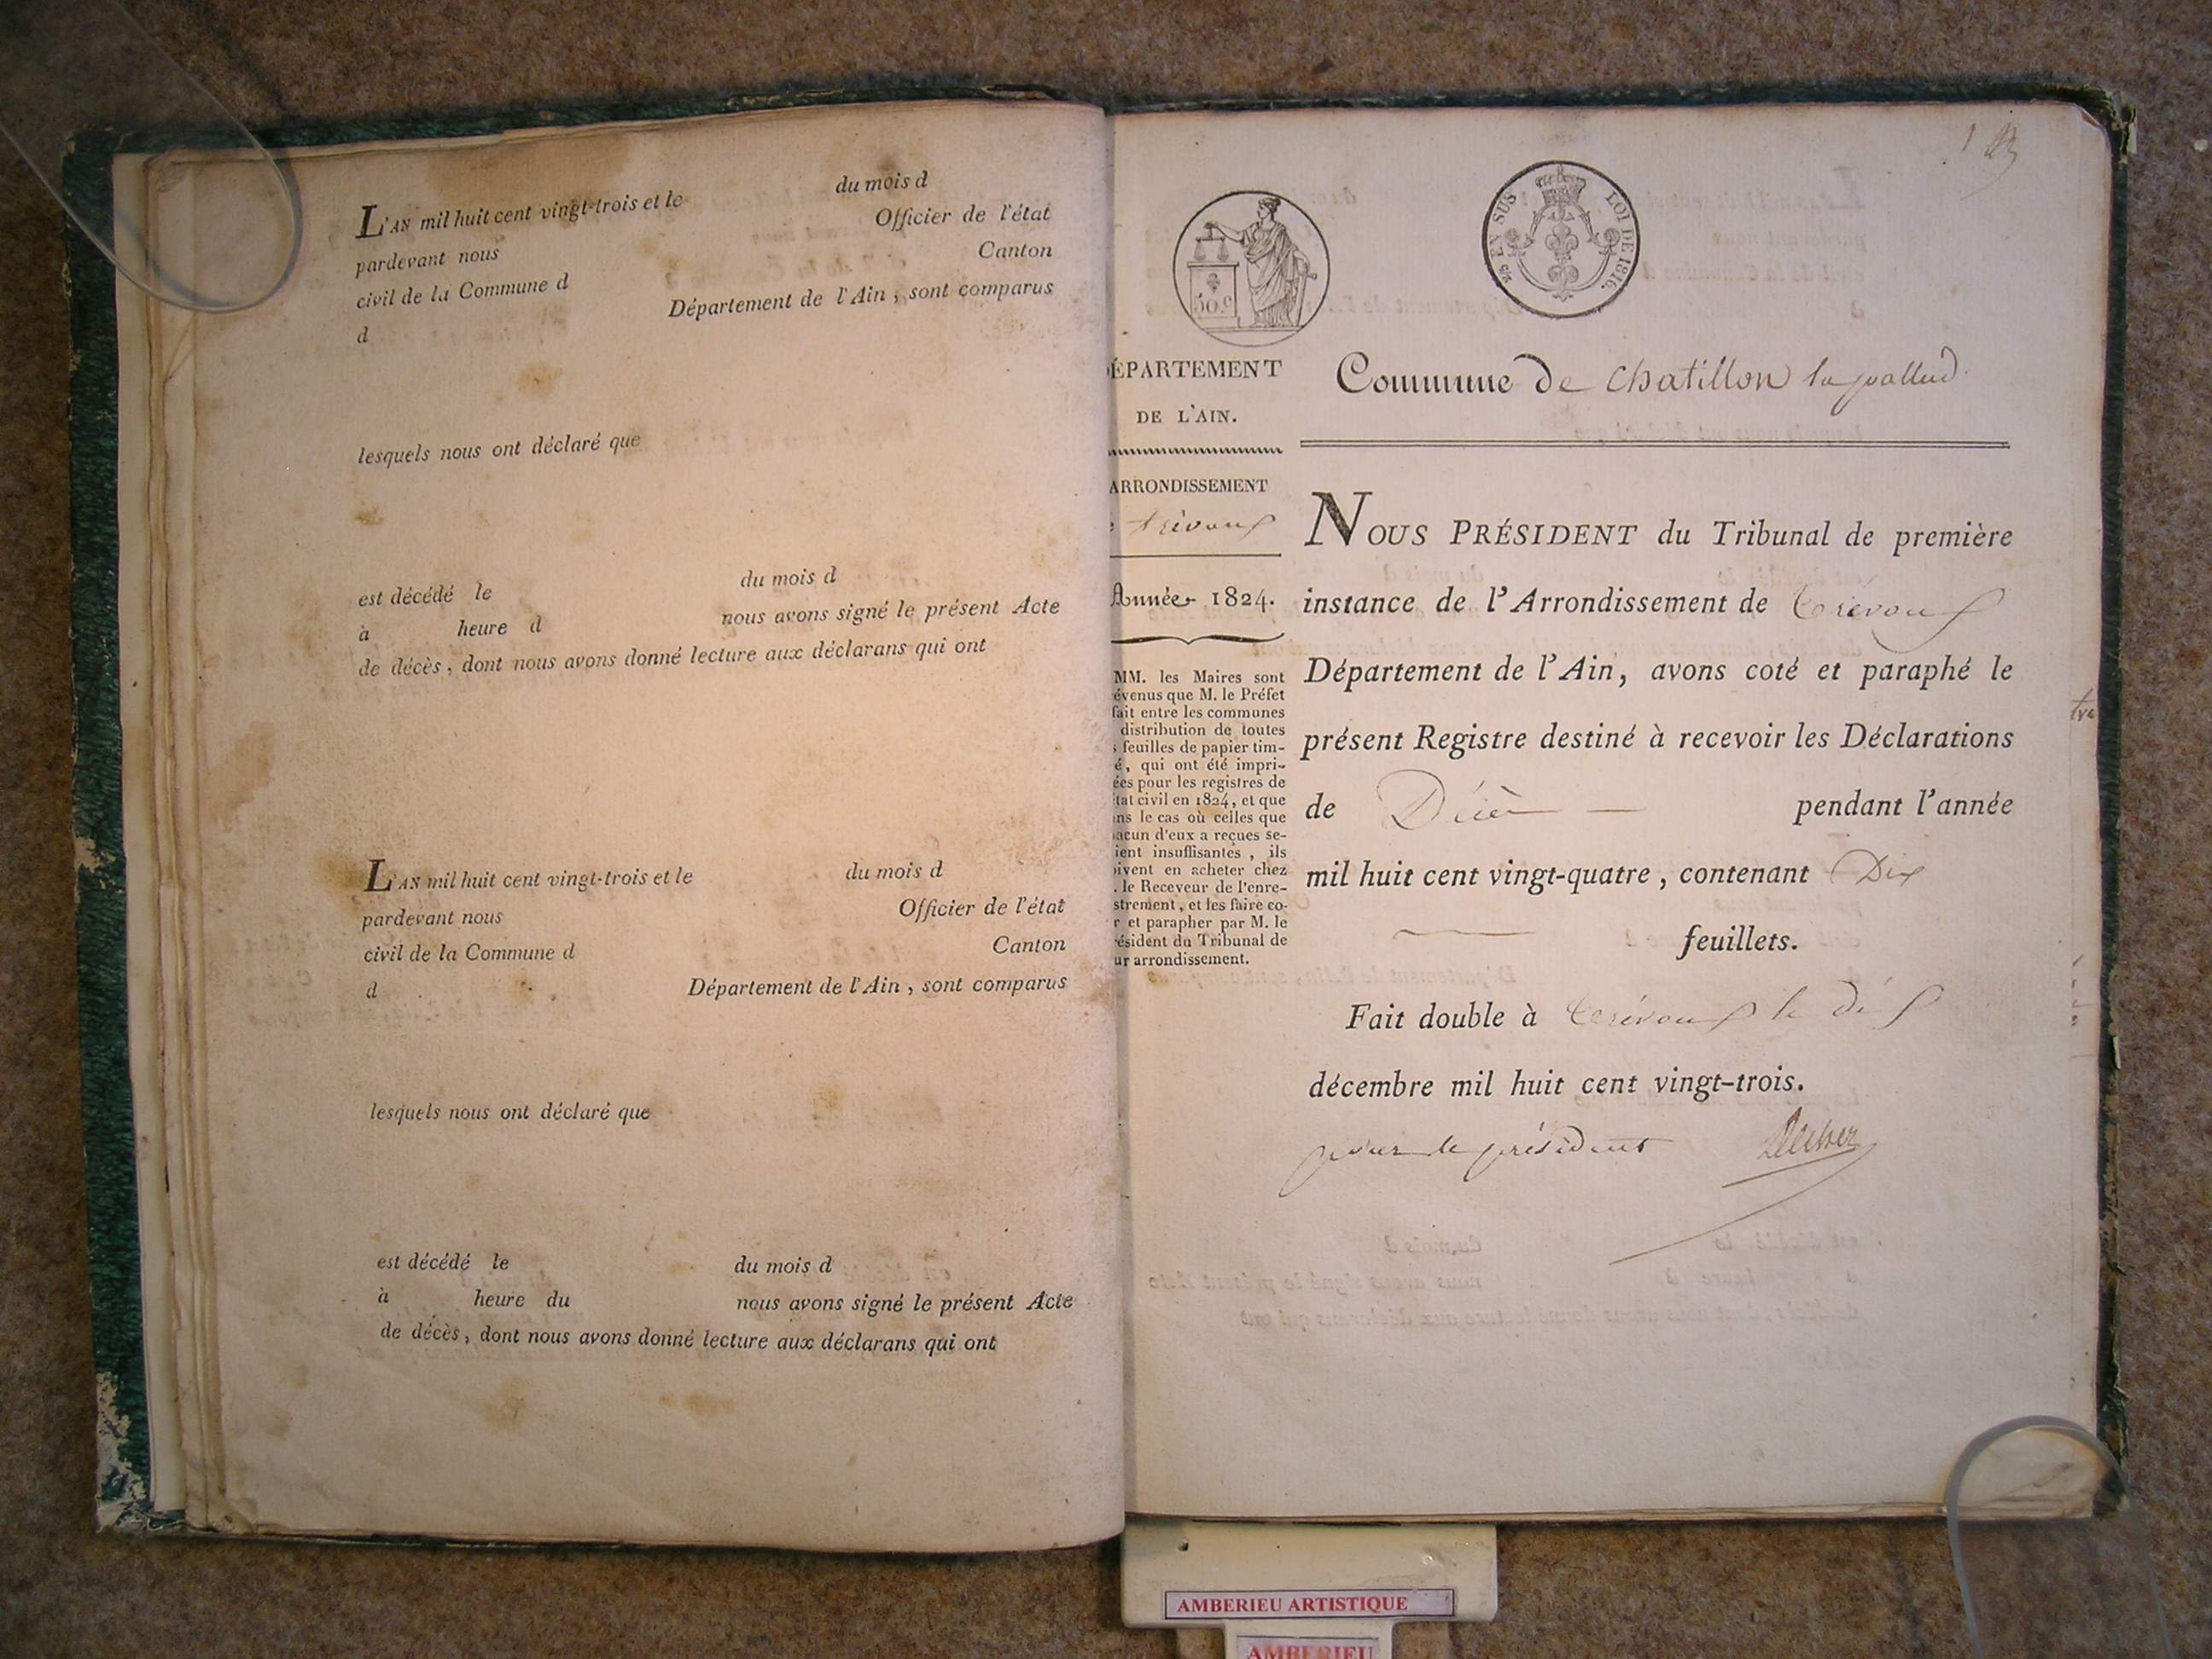 L'AN mil huit cent vingt-trois et le du mois d
pardevant nous Officier de l'état
civil de la Commune d Canton
d Département de l'Ain, sont comparus
lesquels nous ont déclaré que
est décédé le du mois d
à heure d nous avons signé le présent Acte
de décès, dont nous avons donné lecture aux déclarans qui ont
L'AN mil huit cent vingt-trois et le du mois d
pardevant nous Officier de l'état
civil de la Commune d Canton
d Département de l'Ain, sont comparus
lesquels nous ont déclaré que
est décédé le du mois d
à heure du nous avons signé le présent Acte
de décès, dont nous avons donné lecture aux déclarans qui ont
1
50 c
EN SUS LOI DE 1816.
ÉPARTEMENT
DE L'AIN.
ARRONDISSEMENT
trévoux
Année 1824.
MM. les Maires sont
évenus que M. le Préfet
fait entre les communes
distribution de toutes
s feuilles de papier tim-
é, qui ont été impri-
ées pour les registres de
tat civil en 1824, et que
ns le cas où celles que
acun d'eux a reçues se-
ient insuffisantes, ils
ivent en acheter chez
. le Receveur de l'enre-
strement, et les faire co-
r et parapher par M. le
ésident du Tribunal de
ur arrondissement.
Commune de Chatillon la pallud
NOUS PRÉSIDENT du Tribunal de première
instance de l'Arrondissement de trévoux
Département de l'Ain, avons coté et paraphé le
présent Registre destiné à recevoir les Déclarations
de Décès pendant l'année
mil huit cent vingt-quatre, contenant Dix
feuillets.
Fait double à trévoux le dix
décembre mil huit cent vingt-trois.
pour le président
AMBERIEU ARTISTIQUE
AMBERIEU